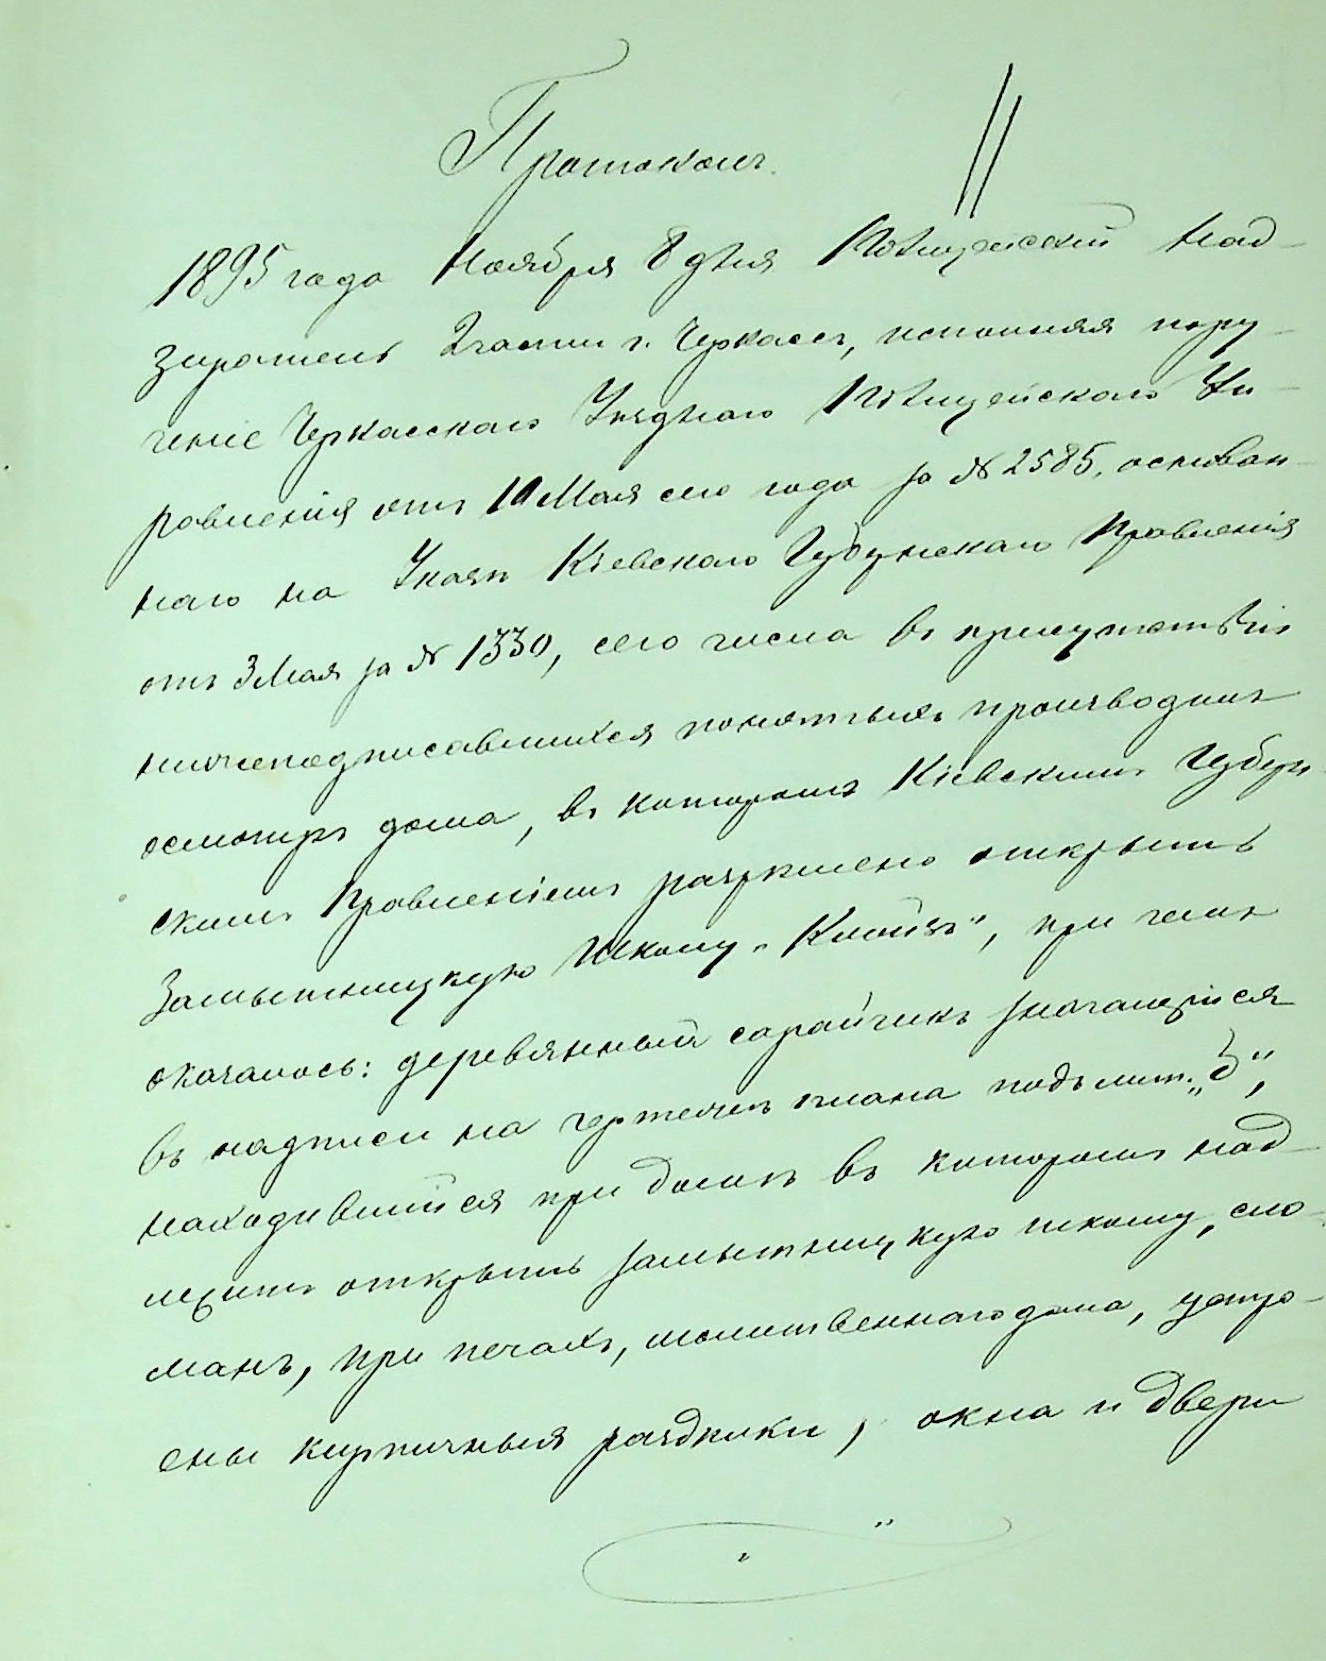 Протоколъ.
1895 года Ноября 8 дня Полицейскій Над-
зиратель 2 части г. Черкассъ, исполняя пору-
ченіе Черкасскаго Уѣзднаго Полицейскаго Уп-
равленія отъ 10 Мая сего года за № 2585, основан-
наго на Указѣ Кіевскаго Губернскаго Правленія
отъ 3 Мая за № 1330, сего числа въ присутствіи
нижеподписавшихся понятыхъ производилъ
осмотръ дома, въ которомъ Кіевскимъ Губерн-
скимъ Правленіемъ разрѣшено открыть
Молитвенную Школу „ ", при чемъ
оказалось: деревянный сарайчикъ значащійся
въ надписи на чертежѣ плана подъ лит. „б",
находившійся при домѣ въ которомъ над-
лежитъ открыть школу, сло-
манъ, при печахъ, молитвеннаго дома, устро-
ены кирпичныя раздѣлки, окна и двери